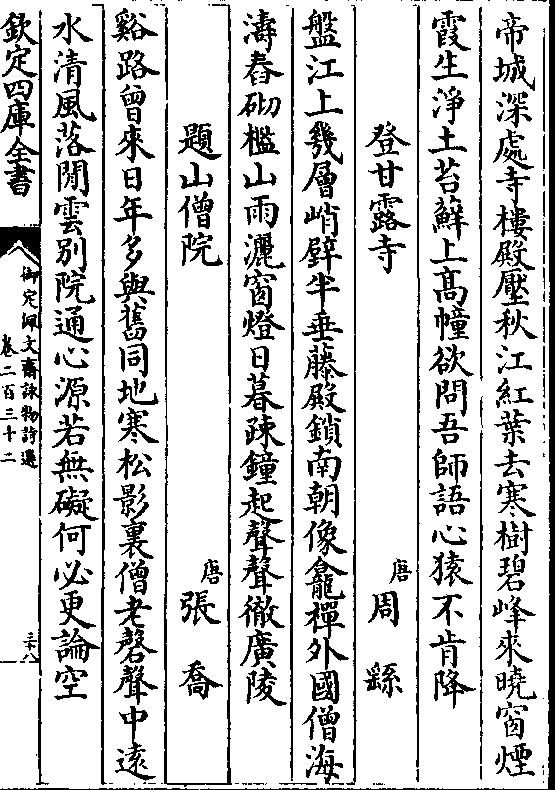 帝城深處寺樓殿壓秋江紅葉去寒樹碧峰來曉窗煙
霞生淨土苔蘚上髙幢欲問吾師語心猿不肯降
登甘露寺
唐周繇
盤江上幾層峭壁半垂藤殿鎖南朝像龕禪外國僧海
濤舂砌檻山雨灑窗燈日暮疎鐘起聲聲徹廣陵
題山僧院
唐張喬
谿路曾來日年多與舊同地寒松影裏僧老磬聲中逺
水清風落閒雲別院通心源若無礙何必更論空
欽定四庫全書
御定佩文齋詠物詩選
卷二百三十二
三十八